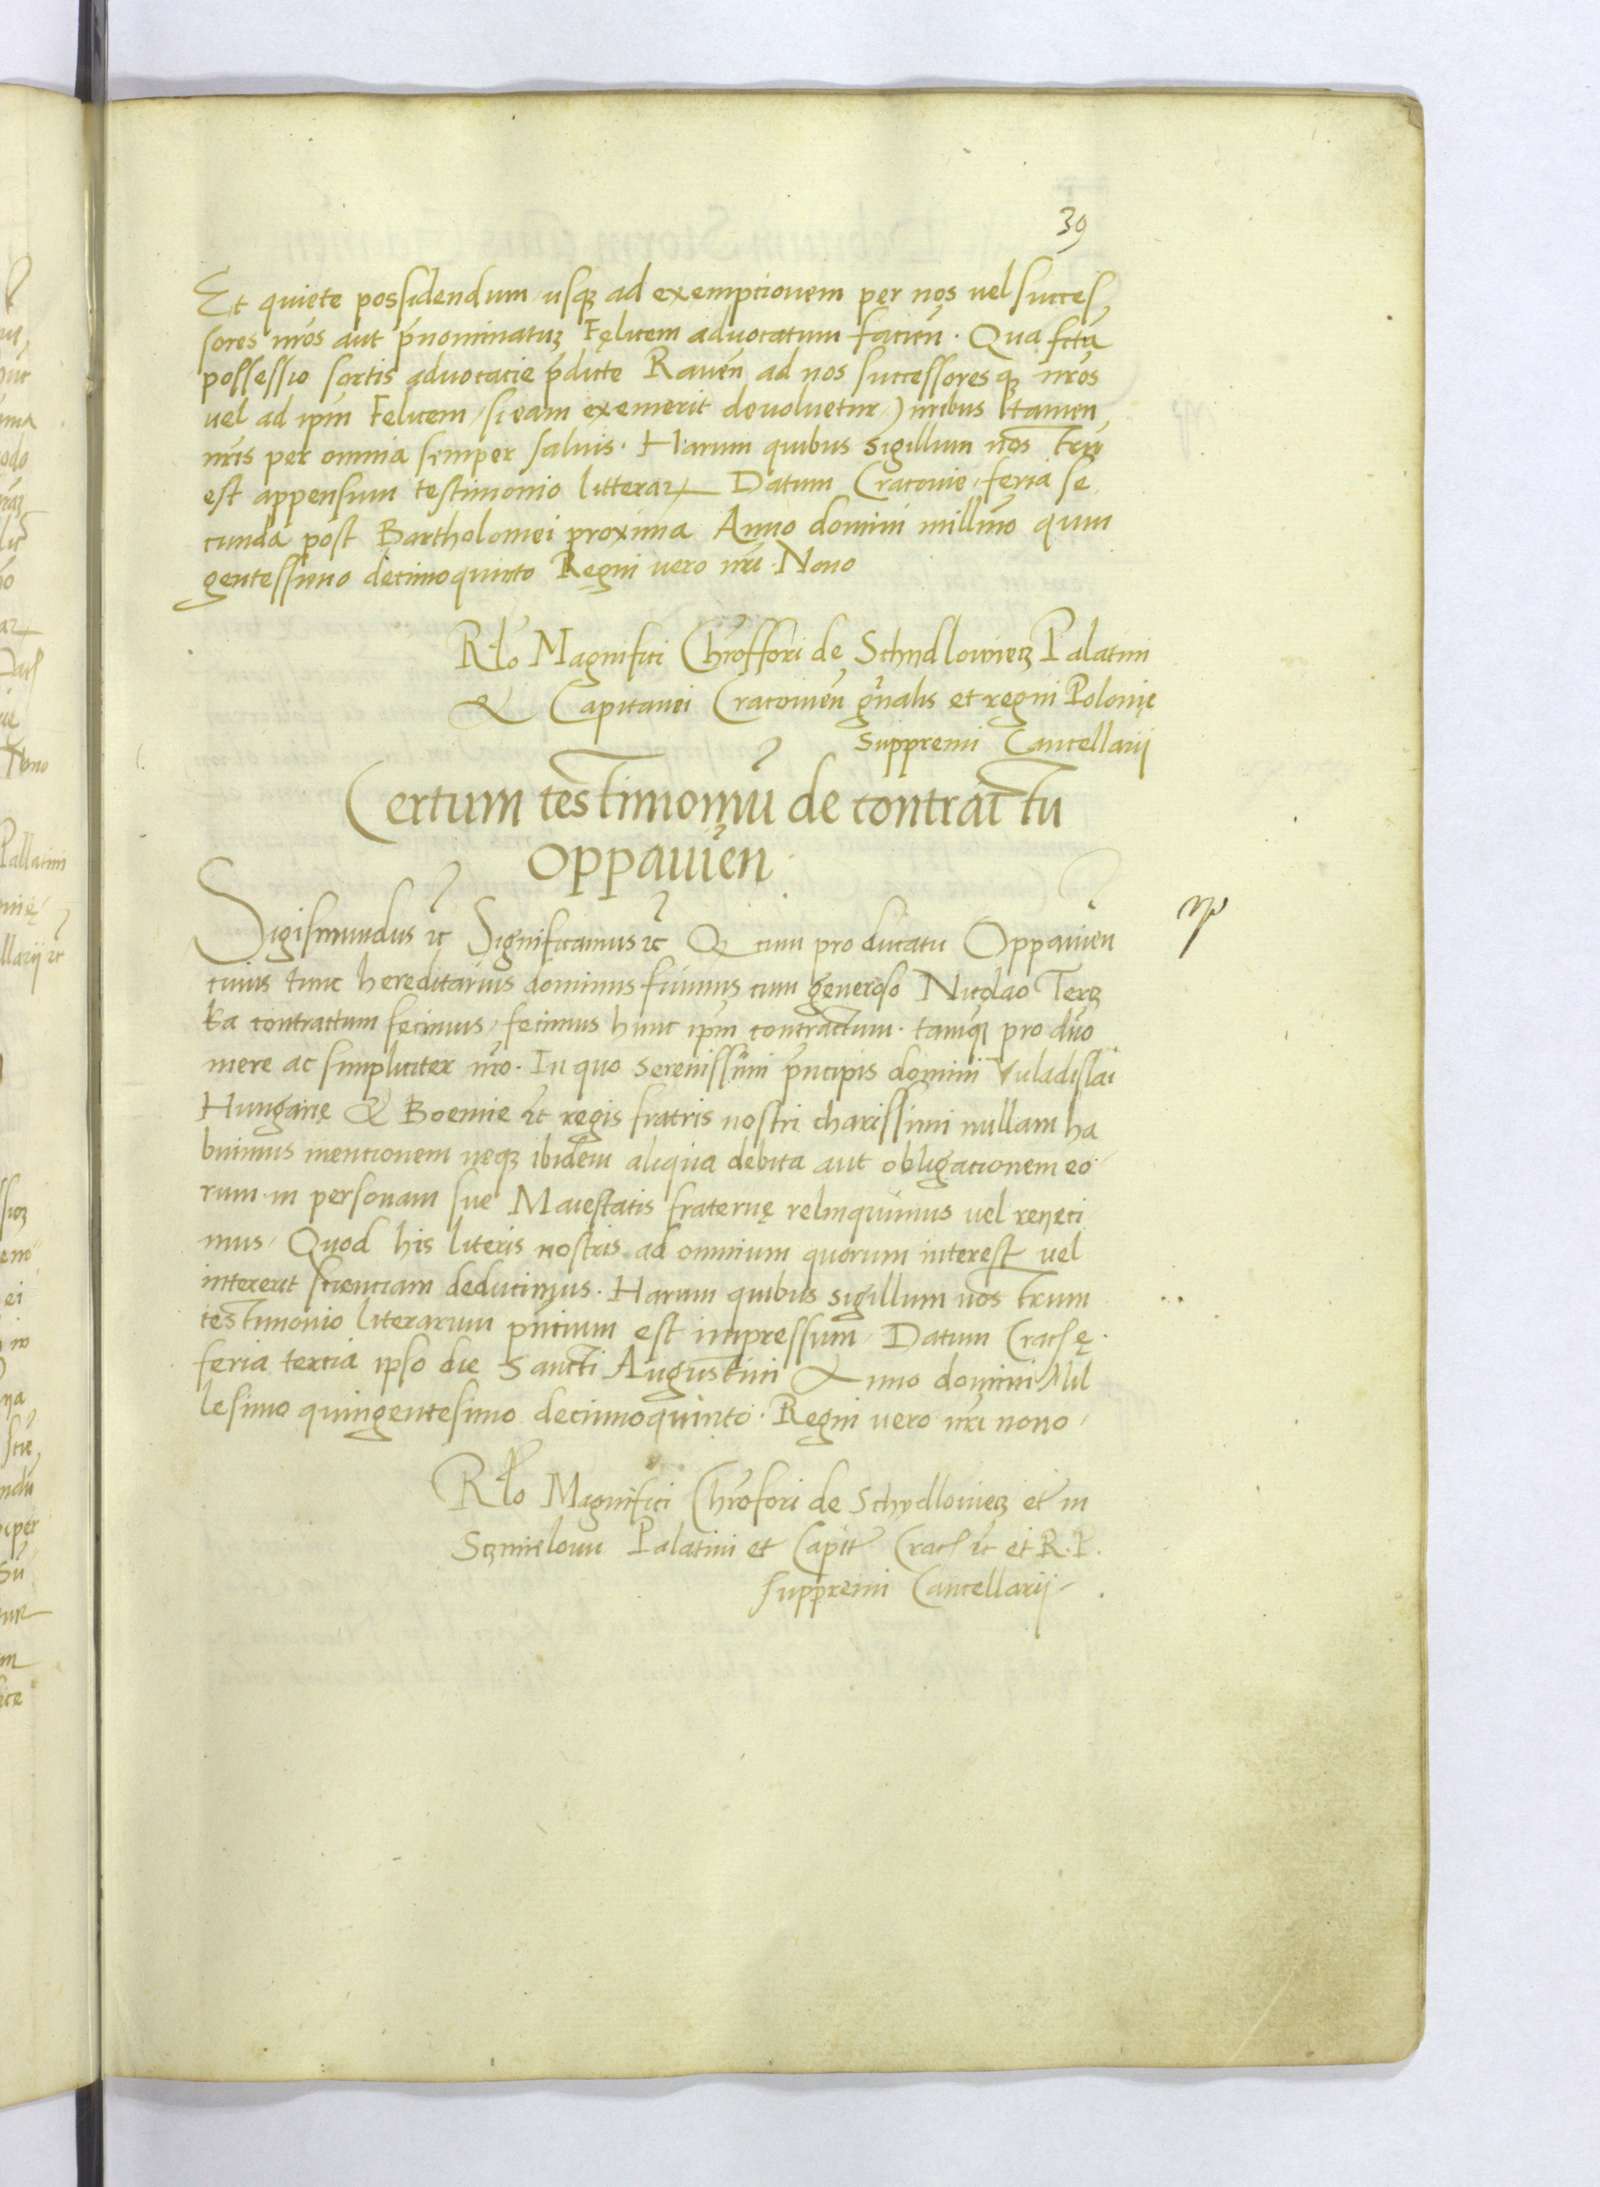 39
Et quiete possidendum usq3 ad exempcionem per nos vel succes
sores nr̄os aut p̄nominatu3 Fęlicem advocatum facień. Qua fctā
possessio sortis advocacie p̄dicte Raveń ad nos successoresq3 nr̄os
vel ad ip̄m Felicem, si eam exemerit devolvetur, Juribus tamen
nr̄is per omnia semper salvis. Harum quibus sigillum nos trū
est appensum testimonio litterarꝝ Datum Cracovie, feria se
cunda post Bartholomei proxima Anno domini millimo quin
gentessimo decimoquinto Regni vero nr̄i. Nono
Rlo Magnifici Chr̄offori de Schydlowiecz Palatini
& Capitanei Cracovień gn̄alis et regni Polonię
Suppremi Cancellarij
Certum testimoniū de contractu
Oppavień
Sigismundus ꝛc Significamus ꝛc Q cum pro ducatu Oppavień
cuius tunc hereditarius dominus fuimus cum generoso Nicolao Tercz
ka contractum fecimus, fecimus hunc ip̄m contractum. tamq3 pro duo
mere ac simpliciter nr̄o. In quo serenissimi p̄ncipis domini Vuladislai
Hungarię & Boemie ꝛc regis fratris nostri charissimi nullam ha
buimus mencionem neq3 ibidem aliqua debita aut obligacionem eo
rum in personam sue Maiestatis fraternę relinquimus vel reieci
mus, Quod his literis nostris ad omnium quorum interest vel
intererit scienciam deducimus. Harum quibus sigillum nos trum
testimonio literarum pn̄cium est impressum, Datum Crac ę.
feria tercia ipso die Sancti Augustini Anno domini Mil
lesimo quingentesimo decimoquinto. Regni vero nr̄i nono,
Rlo Magnifici Chr̄ofori de Schydlowiecz et in
Szmielow Palatini et Capit Crac ꝛc et R. P.
suppremi Cancellarij